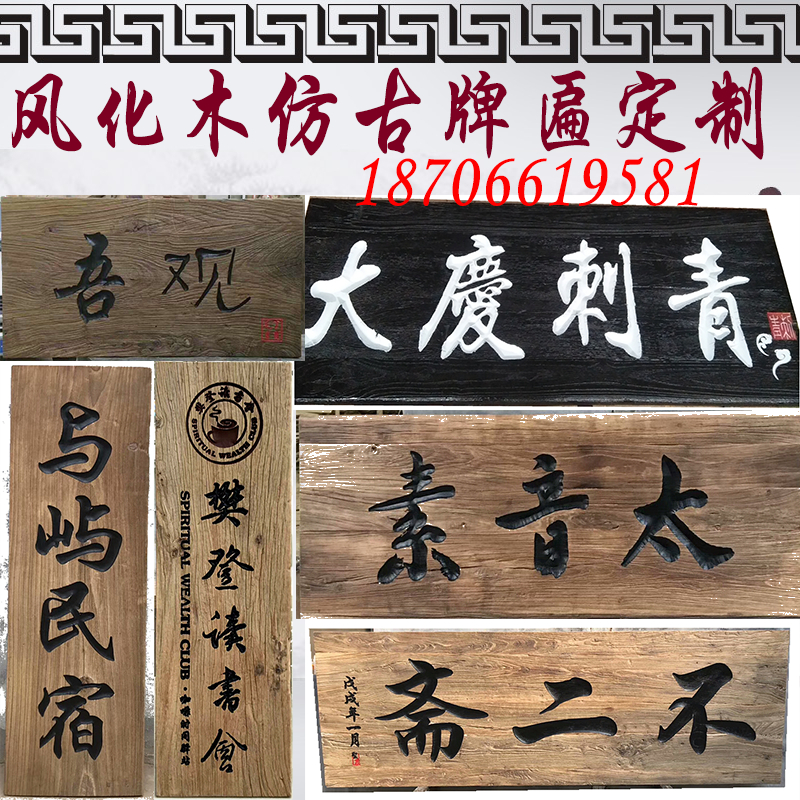 风化木仿古牌匾定制
18706619581
吾观
大慶刺青
与屿民宿
樊登读书会
SPIRITUAL WEALTH CLUB
樊登读书会
SPIRITUAL WEALTH CLUB·咖啡时间驿站
素音太
戊戌年一月
斋二不